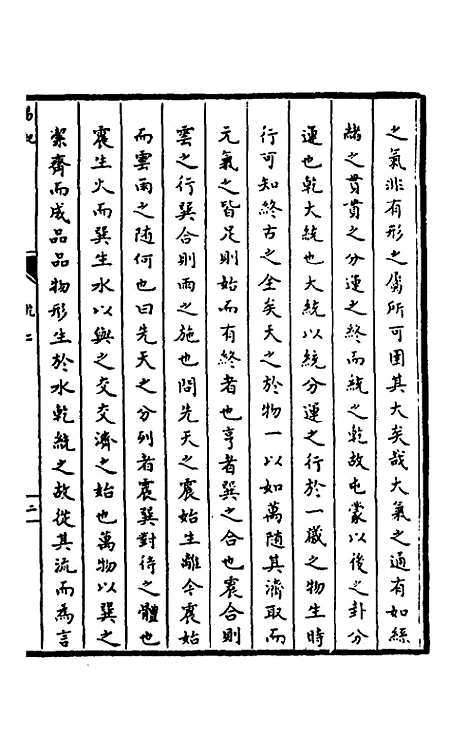 之氣非有形之屬所可囿其大矣哉大氣之通有如絲
緒之貫貫之分運之終而統之乾故屯蒙以後之卦分
運也乾大統也大統以統分運之行於一歲之物生時
行可知終古之全矣天之於物一以如萬隨其濟取而
元氣之皆足則始而有終者也亨者巽之合也震合則
雲之行巽合則雨之施也問先天之震始生離今震始
而雲雨之随何也曰先天之分列者震巽對待之體也
震生火而巽生水以與之交交濟之始也萬物以巽之
潔齊而成品品物形生於水乾統之故從其流而為言
易
二